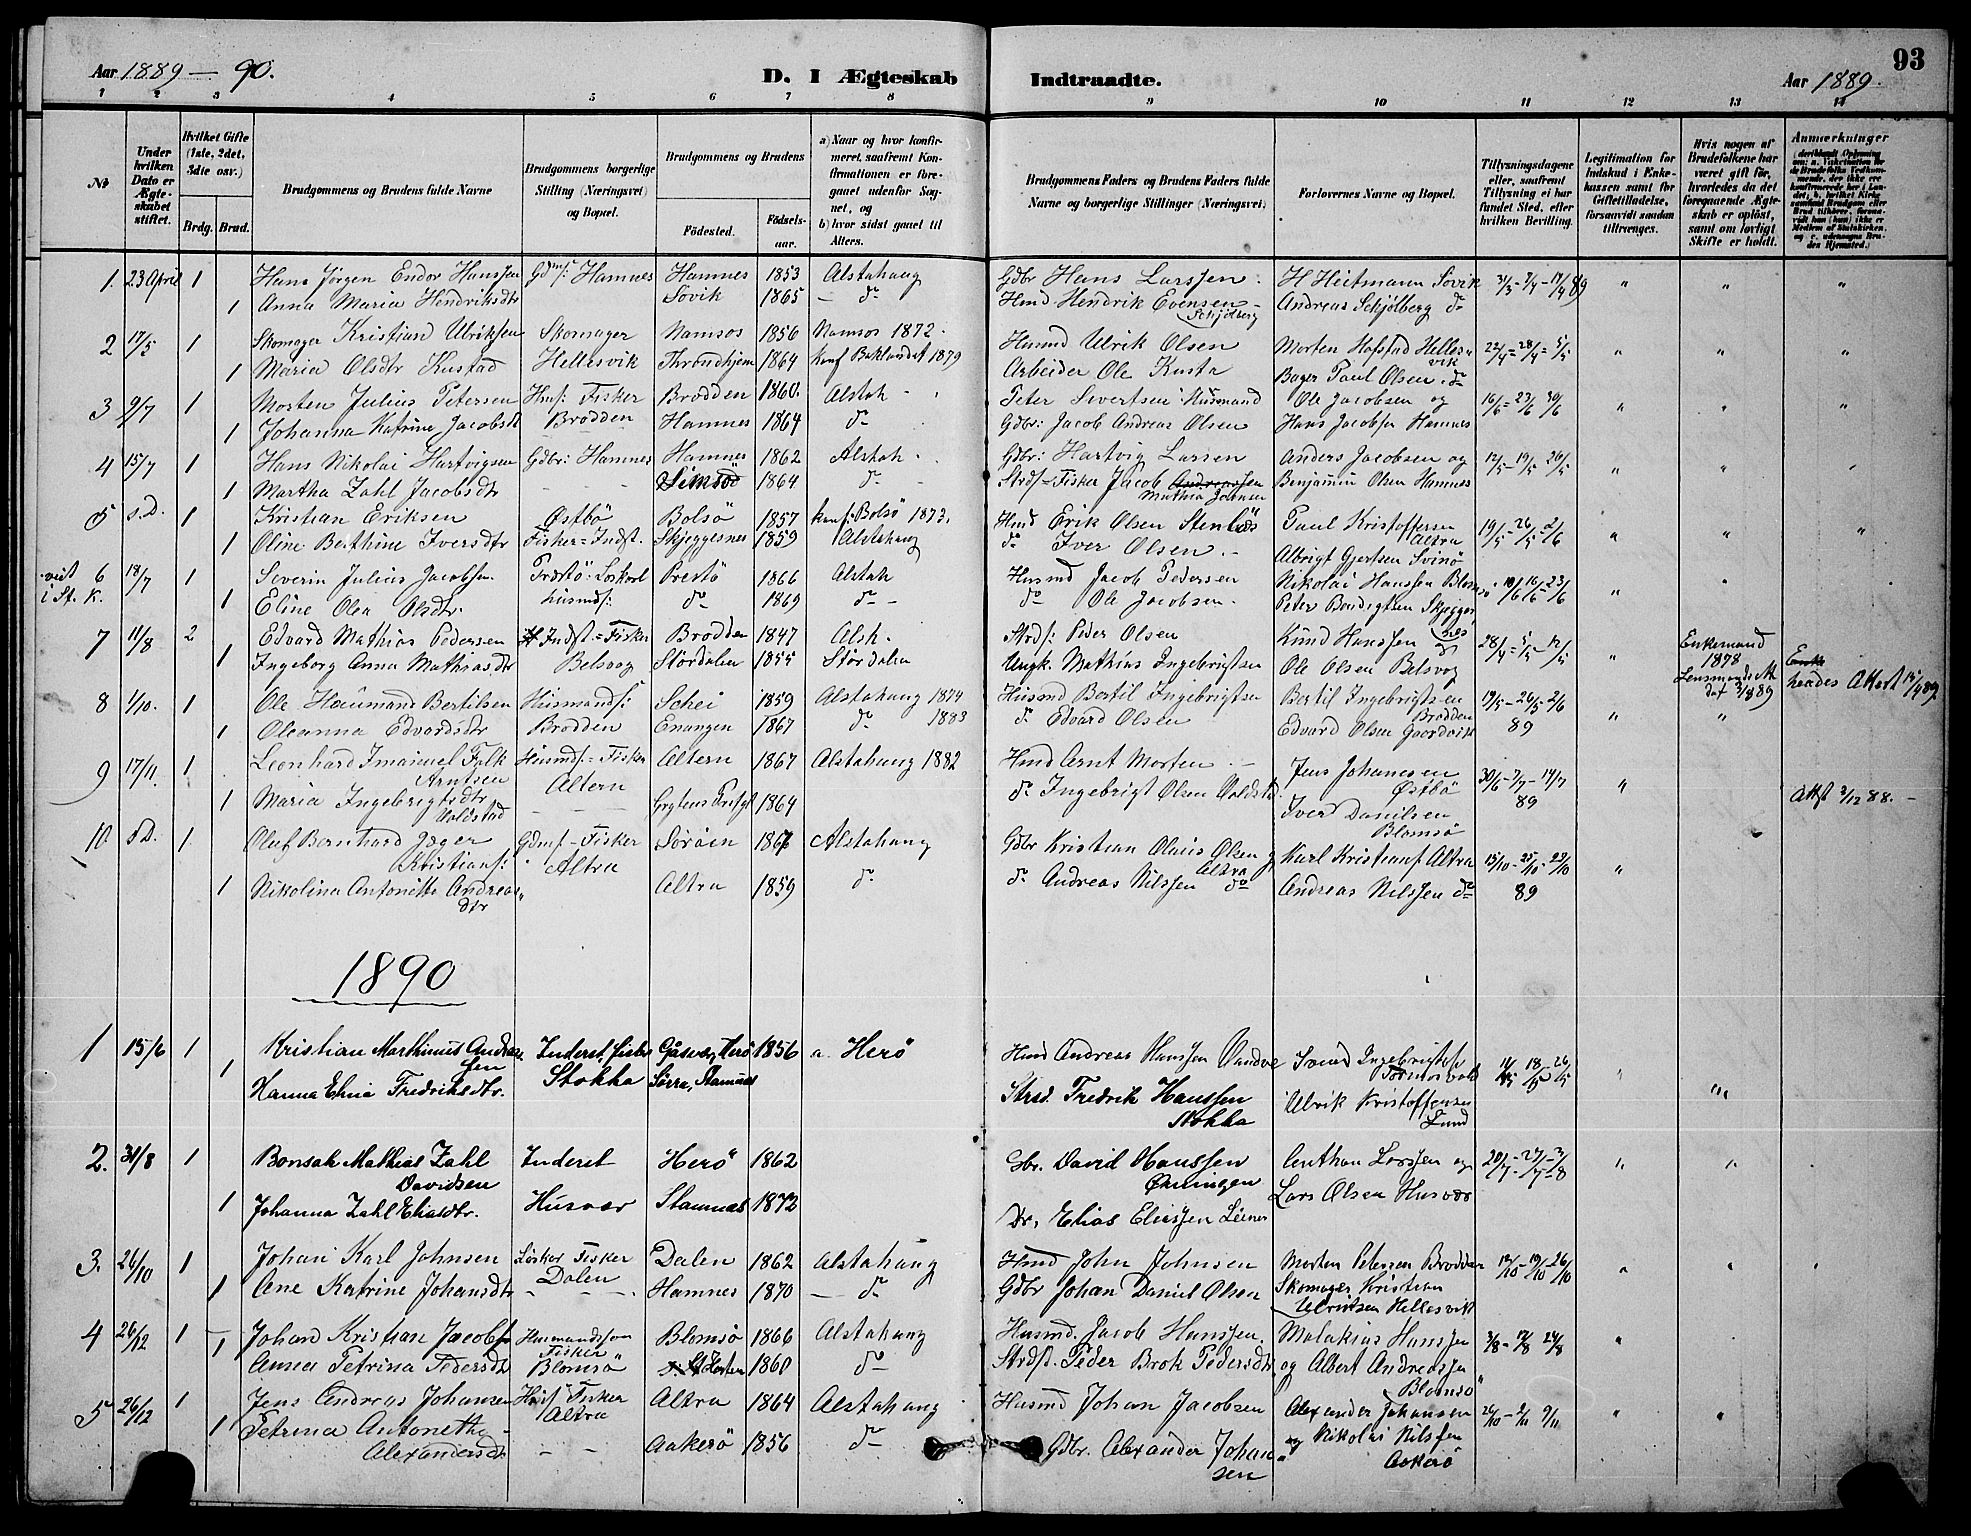 Aar 1889 — 90.
D. I Ægteskab
Indtraadte.
Aar 1889.
93
1 2 3 4 5 6 7 8 9 10 11 12 13 14
No
Under hvilken Dato er Ægteskabet stiftet.
Hvilket Gifte (1ste, 2det, 3die osv.)
Brdg. Brud.
Brudgommens og Brudens fulde Navne
Brudgommens borgerlige Stilling (Næringsvei) og Bopæl.
Brudgommens og Brudens
Fødested.
Fødselsaar.
a) Naar og hvor konfirmeret, saafremt Konfirmationen er foregaaet udenfor Sognet, og
b) hvor sidst gaaet til Alters.
Brudgommens Faders og Brudens Faders fulde Navne og borgerlige Stillinger (Næringsvei)
Forlovernes Navne og Bopæl.
Tillysningsdagene eller, saafremt Tillysning ei har fundet Sted, efter hvilken Bevilling.
Legitimation for Indskud i Enkekassen samt for Giftetilladelse, forsaavidt saadan tiltrænges.
Hvis nogen af Brudefolkene har været gift før, hvorledes da det foregaaende Ægteskab er opløst, samt om lovligt Skifte er holdt.
Anmærkninger
1. 23 April 1 Hans Jörgen Endor Hanssen Gdmf: Hamnes Hamnes 1853 Alstahaug Gdbr Hans Larssen. H Heitmann Søvik 31/3 - 7/4 - 14/4 89 " " "
1 Anna Maria Hendriksdtr Søvik 1865 — do Hmd Hendrik Evensen - Schjølberg Andreas Schjølberg do
2 17/5 1 Skomager Kristian Ulriksen Skomager Namsos 1856 Namsos 1872. Husmd Ulrik Olsen Morten Hofstad Hellesvik 22/4 = 28/4 = 5/5 " " "
1 Maria Olsdtr Kustad Hellesvik Throndhjem 1864 konf Baklandet 1879 Arbeider Ole Kusta Bager Paul Olsen. do
3 9/7 1 Morten Julius Petersen Hmf: Fisker Brodden 1860. Alstah - Peter Sivertsen Husmand Ole Jacobsen og 16/6 = 23/6 30/6 " " "
1 Johanna Katrine Jacobsdt Brodden Hamnes 1864 do Gdbr: Jacob Andreas Olsen Hans Jacobsen Hamnes
4 15/7 1 Hans Nikolai Hartvigsen Gdbr: Hamnes Hamnes 1862 Alstah - Gdbr: Hartvig Larsen Anders Jacobsen og 12/5 - 19/5 26/5 " "
1 Martha Zahl Jacobsdtr - - - 1864 do - Strdf - Fisker Jacob Andreassen Mathia Joensen Benjamin Olsen Hamnes
5 s.D. 1 Kristian Eriksen Østbö Bolsö 1857 konf: Bolsö 1872. Hmd Erik Olsen Paul Kristoffersen Altra 19/5 - 26/5 - 2/6 " " "
1 Oline Berthine Iversdtr Fisker = Indst. Skjeggesnes 1859 Alstahaug do Iver Olsen. - Albrigt Gjertsen Svinö
viet i St. K. 6 18/7 1 Severin Julius Jacobsen Prestö 1866 Alstah Husmd Jacob Pedersen Nikolai Hanssen 10/6 16/6 - 23/6 "
1 Eline Olea Olsdtr. husmdf: do 1869 do - do Ole Jacobsen. Peter Bendigtsen Skjeggesnes
7 11/8 2 Edvard Mathias Pedersen Indst. = Fisker Brodden 1847 Alsh. Strdf: Peder Olsen Knud Hanssen 28/4 = 5/5 - 12/5 " Enkemand 1878
1 Ingeborg Anna Mathiasdtr Belsvog Stördalen 1855 Stördalen Ungk. Mathias Ingebrigtsen Ole Olsen Belsvog Lensmands Atk dat 2/8 89 Attest 15/4 89
8 1/10. 1 Ole Haumand Bertilsen Husmandf: Schei 1859 Alstahaug 1874 Husmd Bertil Ingebrigtsen Bertil Ingebrigtsen Brodden 19/5 - 26/5 - 2/6 89 " "
1 Oleanna Edvardsdtr Brodden Enangen 1867 do 1883 do Edvard Olsen Edvard Olsen
9 17/11. 1 Leonhard Imanuel Falk Arntsen Husmdf: = Fisker Altern Altern 1867 Alstahaug 1882 Hmd Arnt Morten - Jens Johansen Østbö 30/6 - 7/7 - 14/7 89 "
1 Maria Ingebrigtsdtr Voldstad - - 1864 do Ingebrigt Olsen Voldstd Iver Danilsen Blomsö Attst 3/12 88. -
10. s D. 1 Oluf Bernhard Jæger Kristianf: Gdmf - Fisker Altra Sörøien 1867 Alstahaug Gdbr Kristian Olaus Olsen Altra Karl Kristianf Altra 15/10 - 25/10 - 29/10 89 "
1 Nikolina Antonette Andreasdtr Altra 1859 do do Andreas Nilssen do Andreas Nilssen do
1890
1 15/6 1 Kristian Marthinus Andreassen Inderst, Fisker Gåsvær, Herö 1856 a. Herö Hmd Andreas Hanssen Ingebrigtsf 11/5 18/5 26/5 " "
1 Hanna Elnia Fredriksdtr. Stokka Sörra, Stamnes Strd. Fredrik Hanssen Stokka Ulrik Kristoffersen Lund
2. 31/8 1 Bonsak Mathias Zahl Davidsen Inderst Herö 1862 Gbr. David Hanssen Anthon Larssen og 20/7 - 27/7 - 3/8 " "
1 Johanna Zahl Eliasdtr. Husvær Stamnes 1872 Do, Elias Eliassen Lars Olsen Husvær
3. 26/10 1 Johan Karl Johnsen Loskar Fisker Dalen 1862 Alstahaug Hmd John Johnsen Morten Petersen Brodden 12/10 - 19/10 26/10 " " "
1 Ane Katrine Johansdtr Dalen Hamnes 1870 — do Gdbr Johan Daniel Olsen Skomager Kristian Ulriksen Hellesvik
4 26/12 1 Johan Kristian Jacobsen Husmandssøn Fisker Blomsö 1866 Alstahaug Husmd. Jacob Hanssen. Malakias Hanssen 3/8 - 17/8 24/8 "
1 Anna Petrina Pedersdtr Blomsö 1860 do Strdf. Peder Brok Pedersdtr og Albert Andreassen Blomsö
5 26/12 1 Jens Andreas Johansen Husf: Fisker Altra 1864 Alstahaug Husmd Johan Jacobsen Alexander Johansen 26/10 - 2/11 9/11 " "
1 Petrina Antonetha Alexandersdtr Altra Aakerö 1856 do Gdbr. Alexander Johansen og Nikolai Nilssen Aakerö